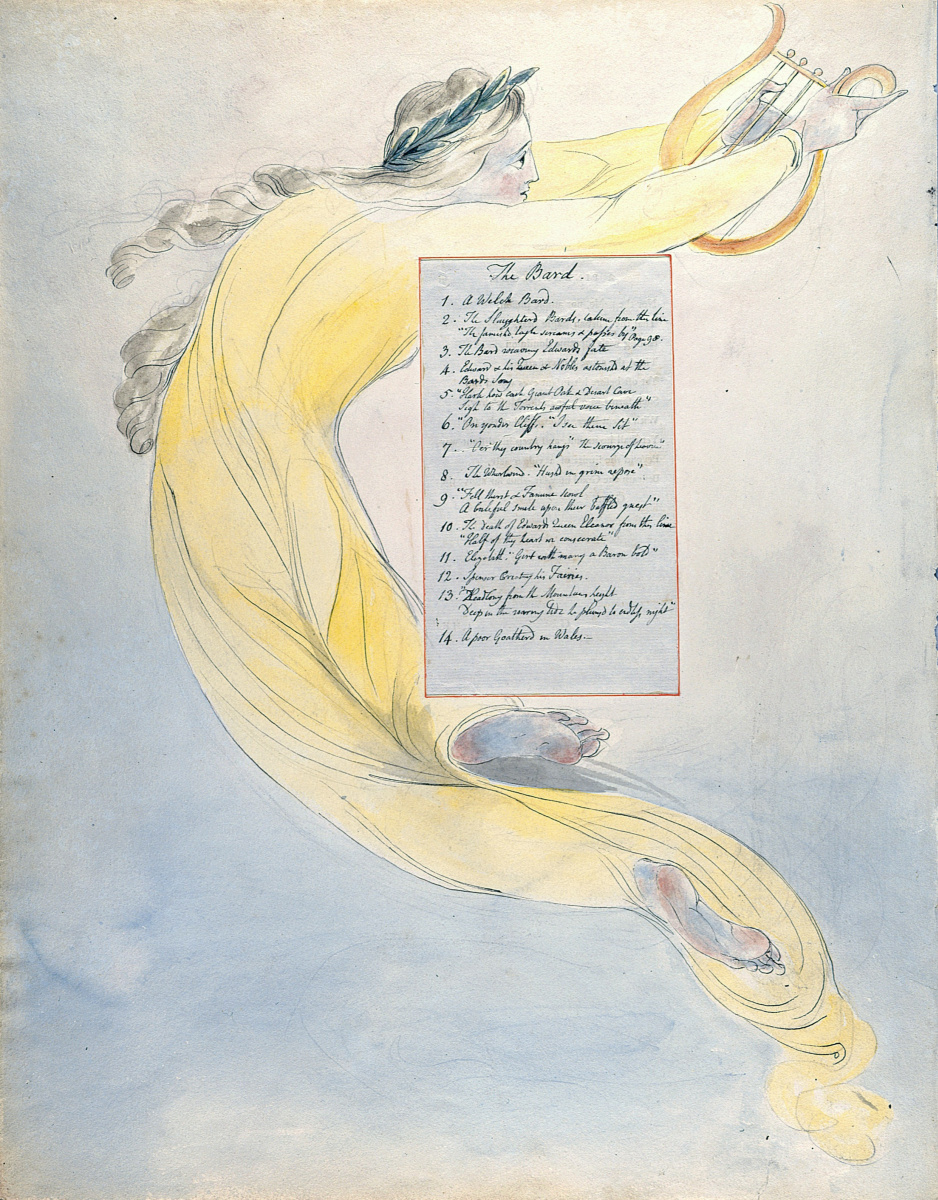 The Bard.
1. A Welch Bard.
2. The Slaughterd Bards, taken from the line
"The famishd Eagle screams & passes by" Page 98
3. The Bard weaving Edwards fate
4. Edward & his Queen & Nobles astonishd at the
Bards Song
5. "Hark how each Giant Oak & Desart Cave
Sigh to the Torrents awful voice beneath"
6. "On yonder Cliffs "I see them Sit"
7. "O'er thy country hangs The scourge of heaven"
8. The Whirlwind "Hush'd in grim repose"
9. "Fell thirst & Famine scowl
A baleful smile upon their baffled guest"
10. The death of Edwards Queen Eleanor from this line
"Half of thy heart we consecrate"
11. Elizabeth "Girt with many a Baron bold"
12. Spenser Creating his Fairies.
13. "Headlong from the Mountains height
Deep in the roaring tide he plung'd to endless night"
14. A poor Goatherd in Wales.—